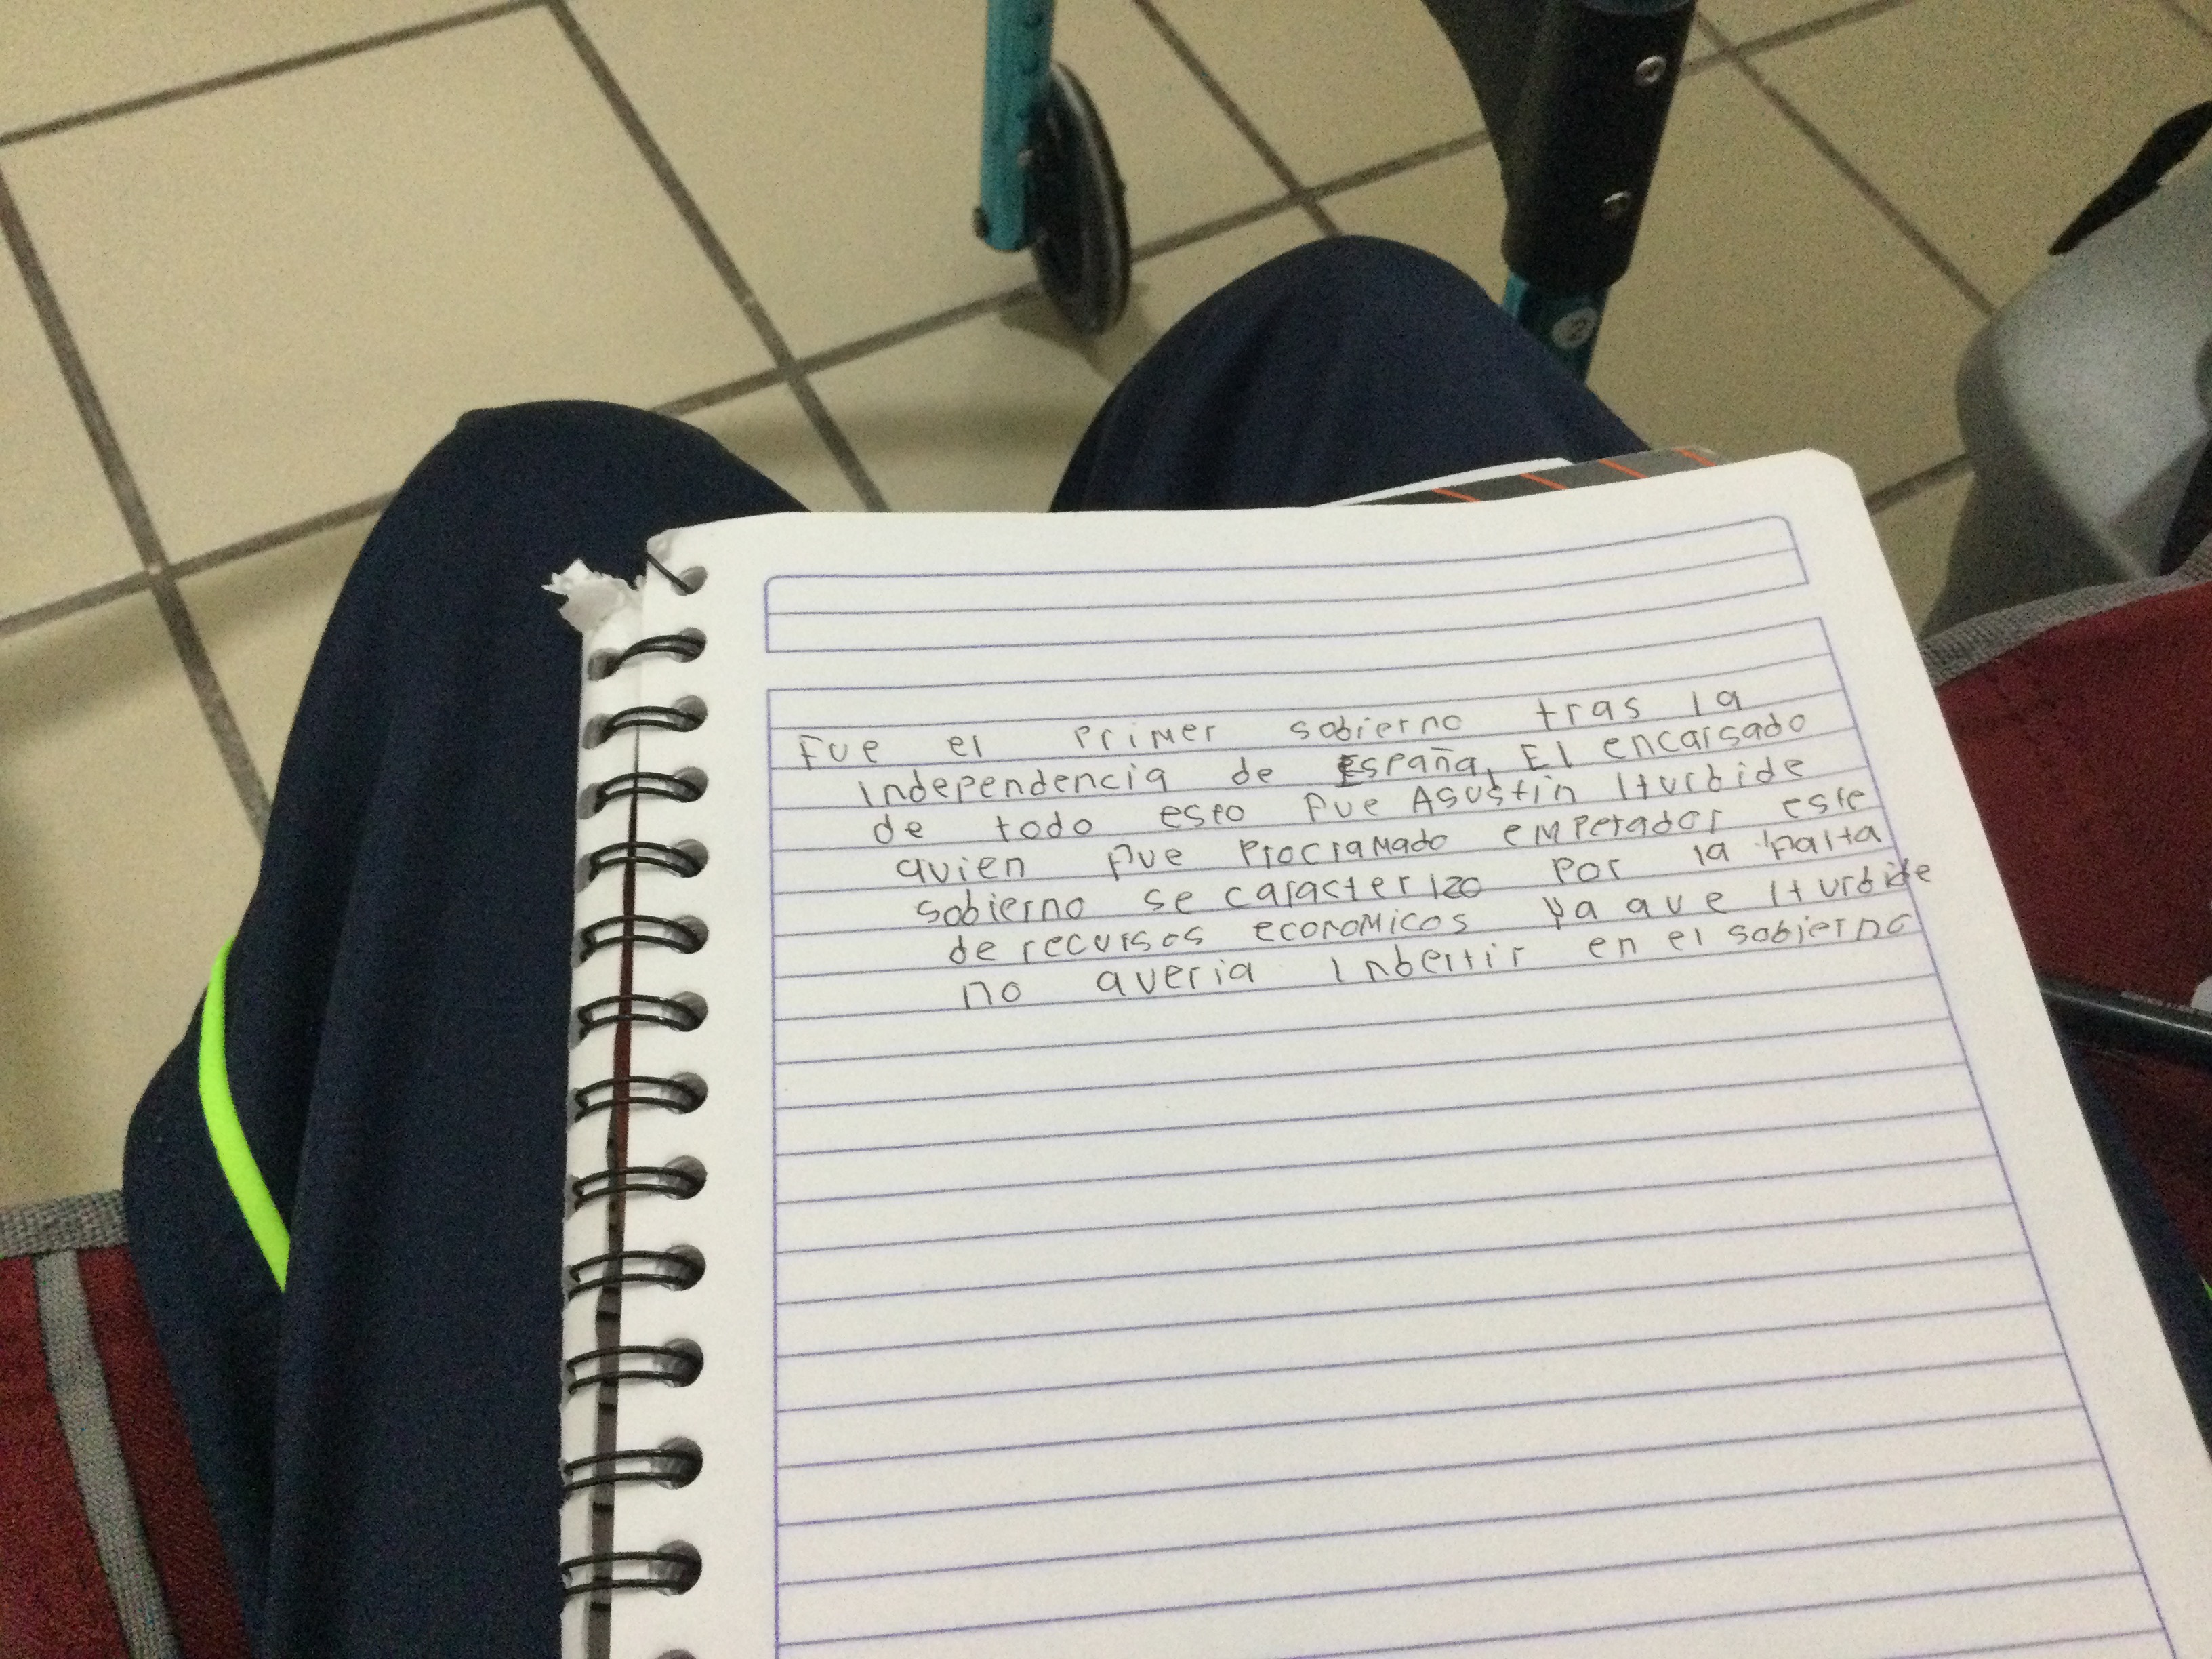 Fue el primer gobierno tras la
independencia de España, El encargado
de todo esto fue Agustin Iturbide
quien fue proclamado emperador este
gobierno se caracterizo por la falta
de recursos economicos ya que Iturbide
no queria inbertir en el gobierno